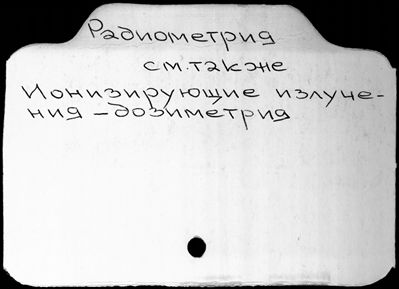 Радиометрия
см.также
Ионизирующие излуче-
ния - дозиметрия